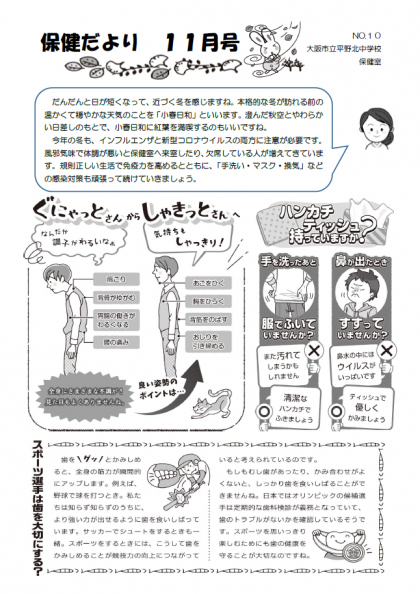 保健だより　１１月号
NO.１０
大阪市立平野北中学校
保健室
だんだんと日が短くなって、近づく冬を感じますね。本格的な冬が訪れる前の
温かくて穏やかな天気のことを「小春日和」といいます。澄んだ秋空とやわらか
い日差しのもとで、小春日和に紅葉を満喫するのもいいですね。
今年の冬も、インフルエンザと新型コロナウイルスの両方に注意が必要です。
風邪気味で体調が悪いと保健室へ来室したり、欠席している人が増えてきていま
す。規則正しい生活で免疫力を高めるとともに、「手洗い・マスク・換気」など
の感染対策も頑張って続けていきましょう。
ぐにゃっとさん から しゃきっとさん へ
なんだか
調子がわるいなぁ
気持ちも
しゃっきり！
肩こり
背骨がゆがむ
胃腸の働きが
わるくなる
腰の痛み
あごをひく
胸をひらく
背筋をのばす
おしりを
引き締める
良い姿勢の
ポイントは…
ハンカチ
ティッシュ
持っていますか？
手を洗ったあと
服でふいて
いませんか？
また汚れて
しまうかも
しれません
清潔な
ハンカチで
ふきましょう
鼻が出たとき
すすって
いませんか？
鼻水の中には
ウイルスが
いっぱいです
ティッシュで
優しく
かみましょう
スポーツ選手は歯を大切にする？
歯を\グッ/とかみしめ
ると、全身の筋力が瞬間的
にアップします。例えば、
野球で球を打つとき。私た
ちは知らず知らずのうちに、
より強い力が出せるように歯を食いしばって
います。サッカーでシュートをするときも一
緒。スポーツをするときには、こうして歯を
かみしめることが競技力の向上につながって
いると考えられているのです。
もしもむし歯があったり、かみ合わせがよ
くないと、しっかり歯を食いしばることがで
きませんね。日本ではオリンピックの候補選
手は定期的な歯科検診が義務となっていて、
歯のトラブルがないかを確認しているそうで
す。スポーツを思いっきり
楽しむためにも歯の健康を
守ることが大切なのですね。